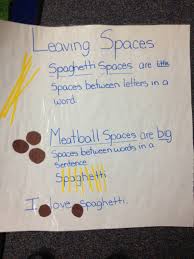 Leaving Spaces
Spaghetti Spaces are little
Spaces between letters in a
word.
Meatball Spaces are big
Spaces between words in a
Sentence
Spaghetti
I love Spaghetti.